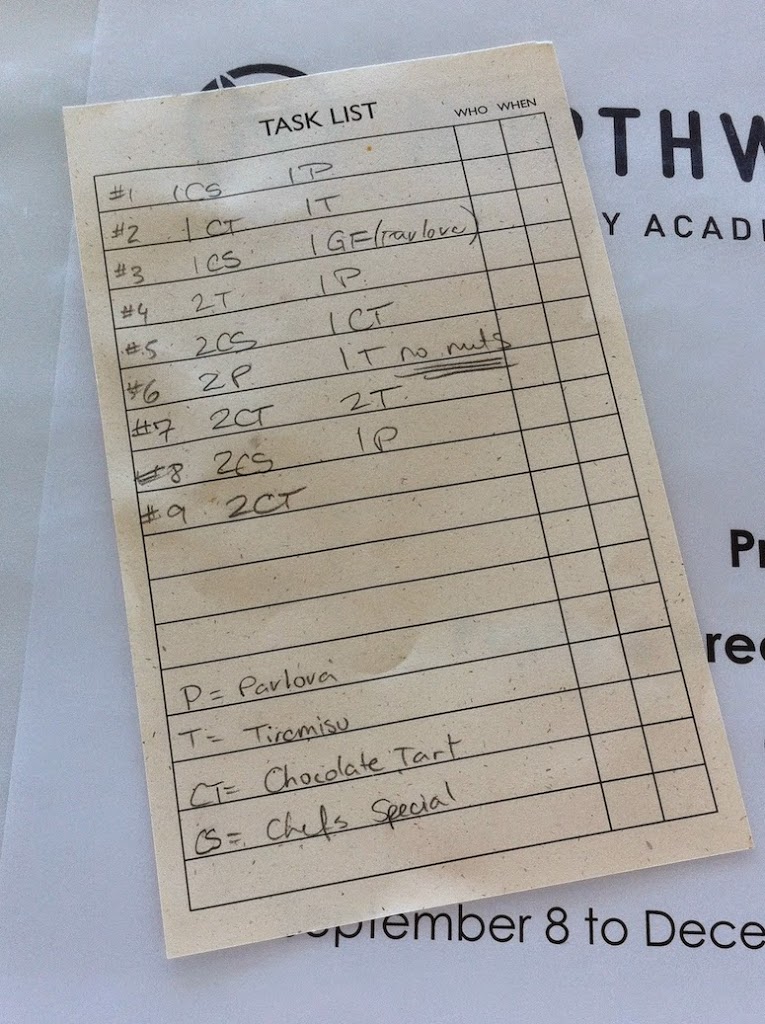 THW
Y ACAD
TASK LIST WHO WHEN
#1 1CS 1P
#2 1CT 1T
#3 1CS 1GF (Pavlova)
#4 2T 1P
#5 2CS 1CT
#6 2P 1T no nuts
#7 2CT 2T
#8 2CS 1P
#9 2CT
P = Pavlova
T = Tiramisu
CT= Chocolate Tart
CS= Chefs Special
Pr
rec
September 8 to Dece